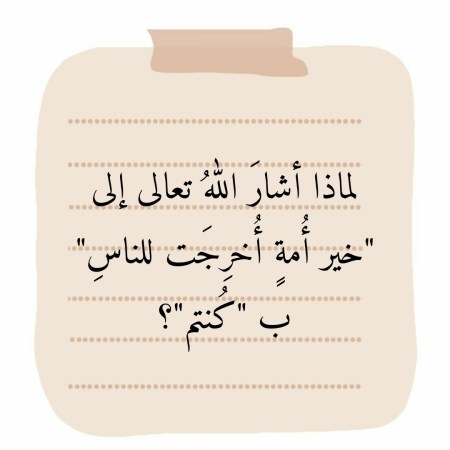 لماذا أشارَ اللهُ تعالى إلى
"خير أُمةٍ أُخرِجَت للناسِ"
ب "كُنتم"؟